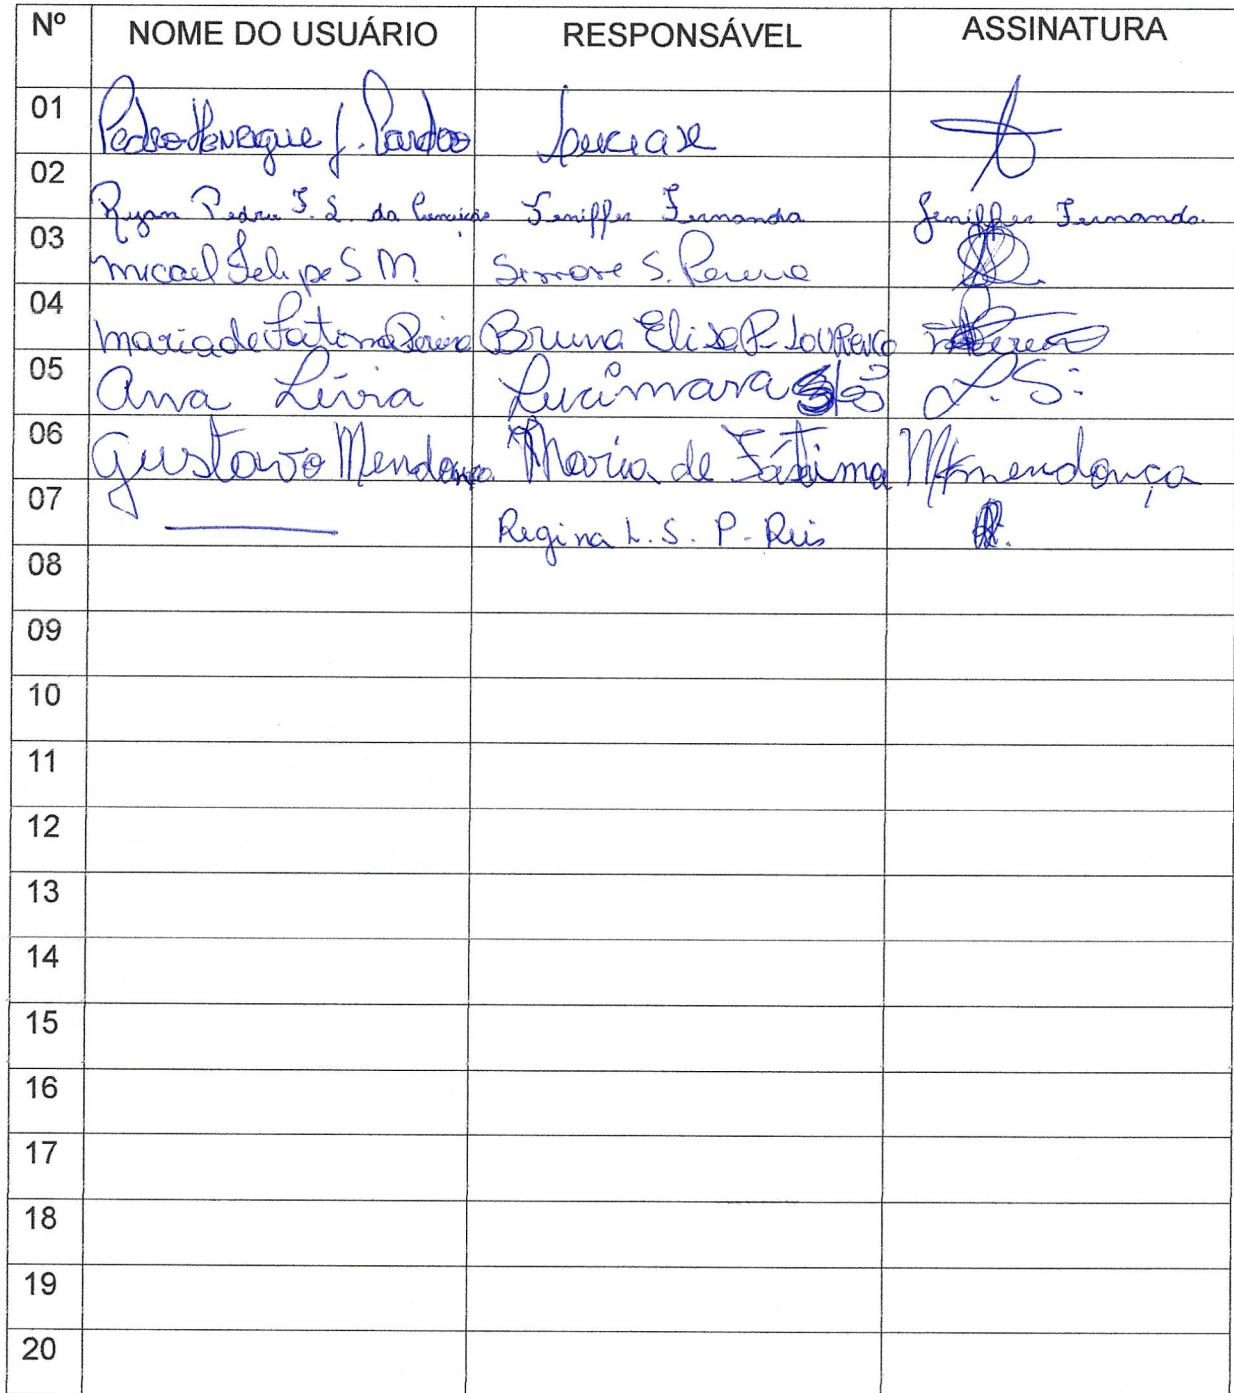 Nº NOME DO USUÁRIO RESPONSÁVEL ASSINATURA
01 Pedro Henrique J. Pardoo
02 Ryan Pedro F. S. da Conceição Feniffer Fernanda Jeniffer Fernanda
03 Micael Felipe S M. Simone S. Pereira
04 maria de Fatima Pereira Bruna Elisa P. LouRenço
05 Ana Lívia Lucimara L. S.
06 Gustavo Mendonça Maria de Fátima Mfmendonça
07 Regina L. S. P. Reis
08
09
10
11
12
13
14
15
16
17
18
19
20